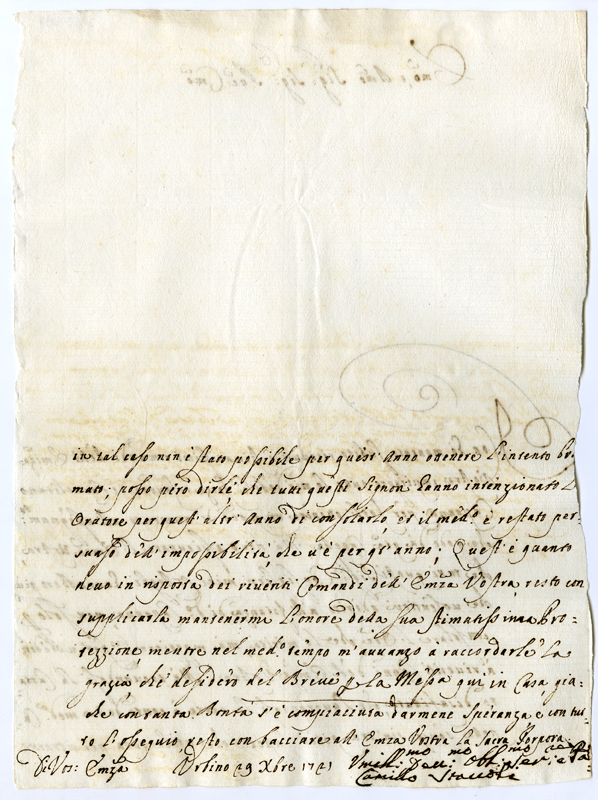 in tal caso non è stato possibile per quest'Anno ottenere l'intento bra=
mato; posso però dirle che tutti questi Signori hanno intenzionato l'
Oratore per quest'altr'Anno di consolarlo, et il medo. è restato per-
suaso dell'impossibilità, che v'è per qt'anno; Quest'è quanto
devo in risposta dei riveriti Comandi dell'Emza Vostra, resto con
supplicarla mantenermi l'onore della sua stimatissima Pro=
tezzione, mentre nel medo. tempo m'avvanzo à raccordarle la
grazia, che desidero del Breve p la Messa qui in Casa, gia=
che con tanta Bontà s'è compiaciuta darmene speranza, e con tut=
to l'ossequio resto con bacciare all'Emza Vostra la Sacra Porpora
Di Vos: Emza Urbino 29 Xbre 1741
Camillo Staccoli